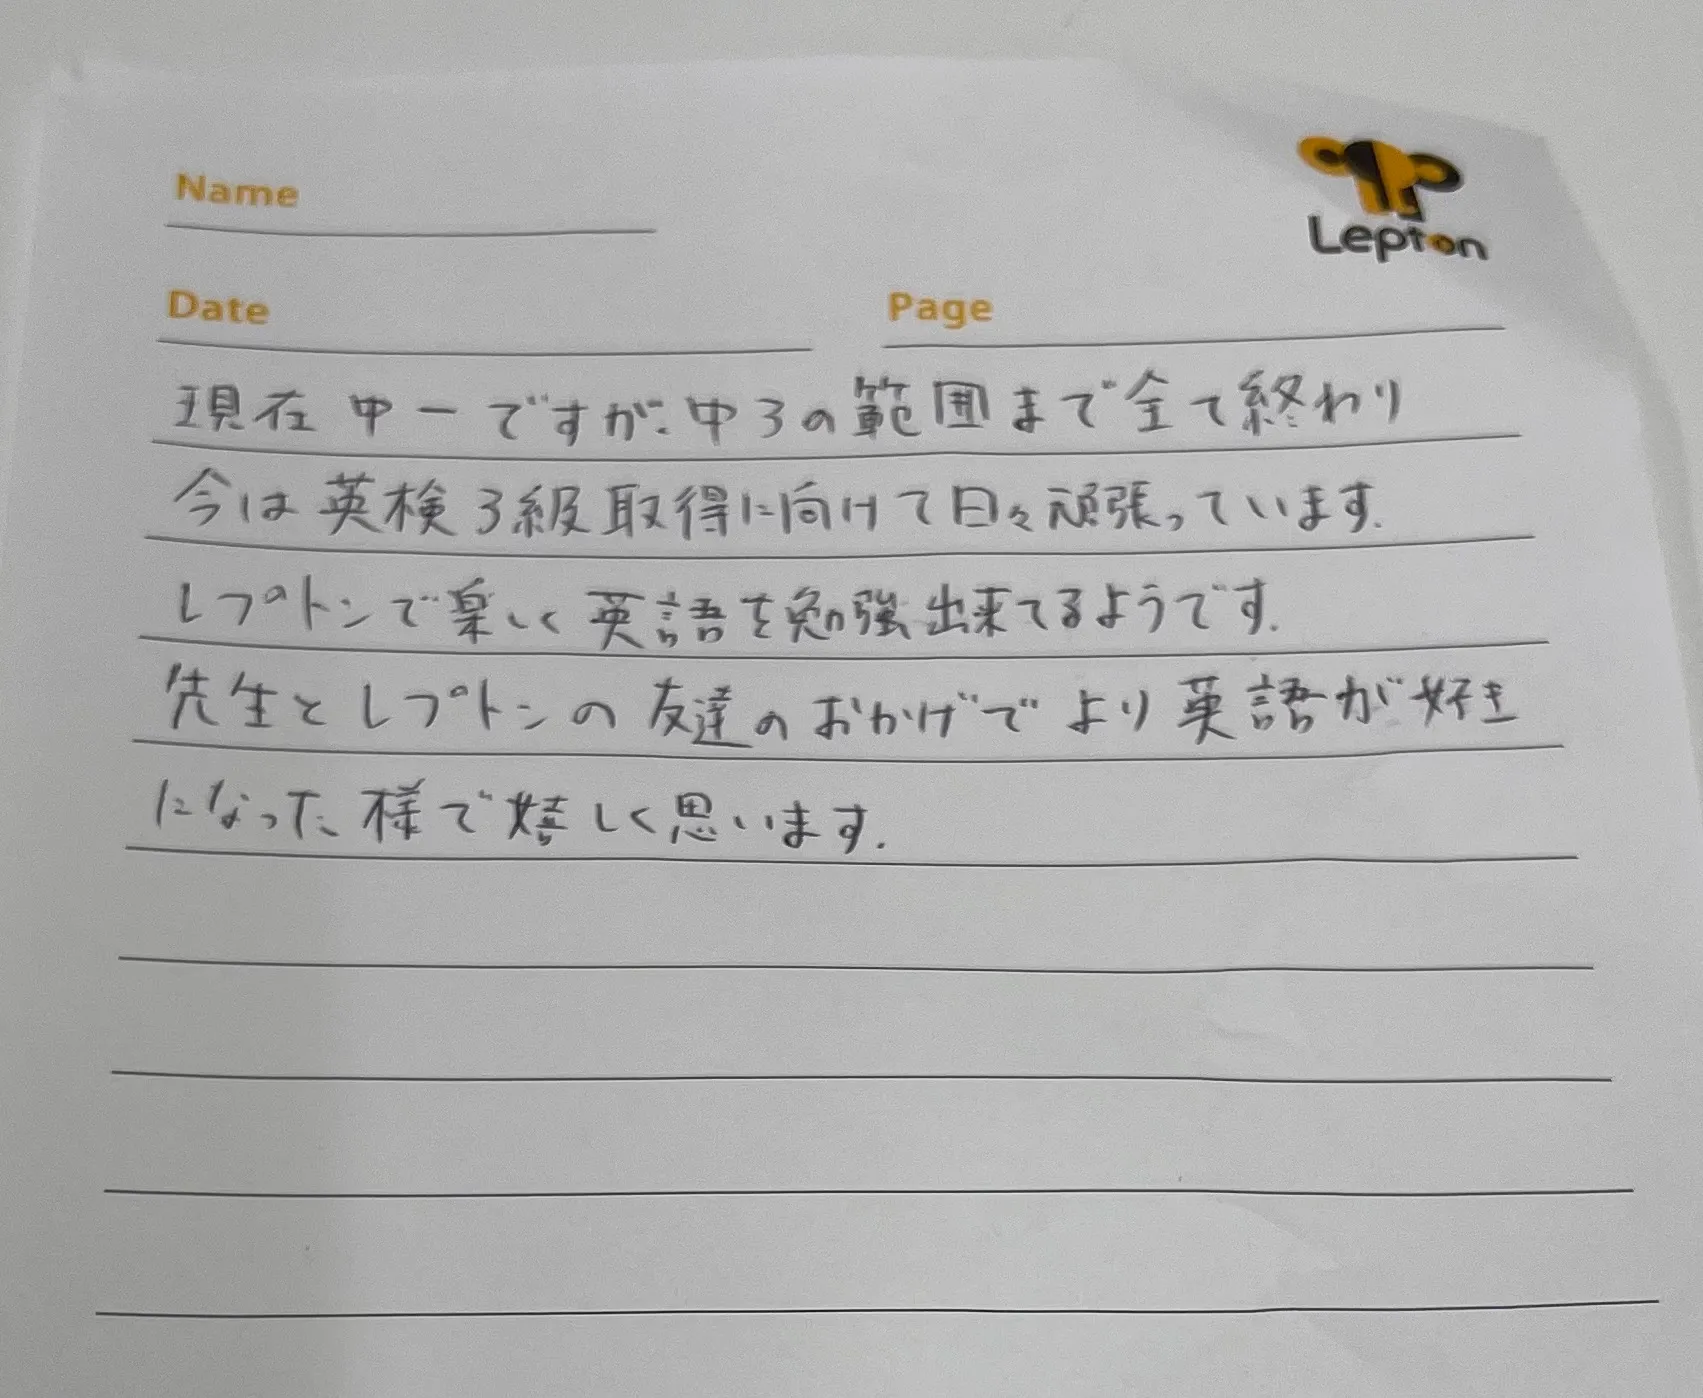 Name
Lepton
Date
Page
現在中一ですが、中3の範囲まで全て終わり
今は英検3級取得に向けて日々頑張っています.
レプトンで楽しく英語を勉強出来てるようです.
先生とレプトンの友達のおかげでより英語が好き
になった様で嬉しく思います.